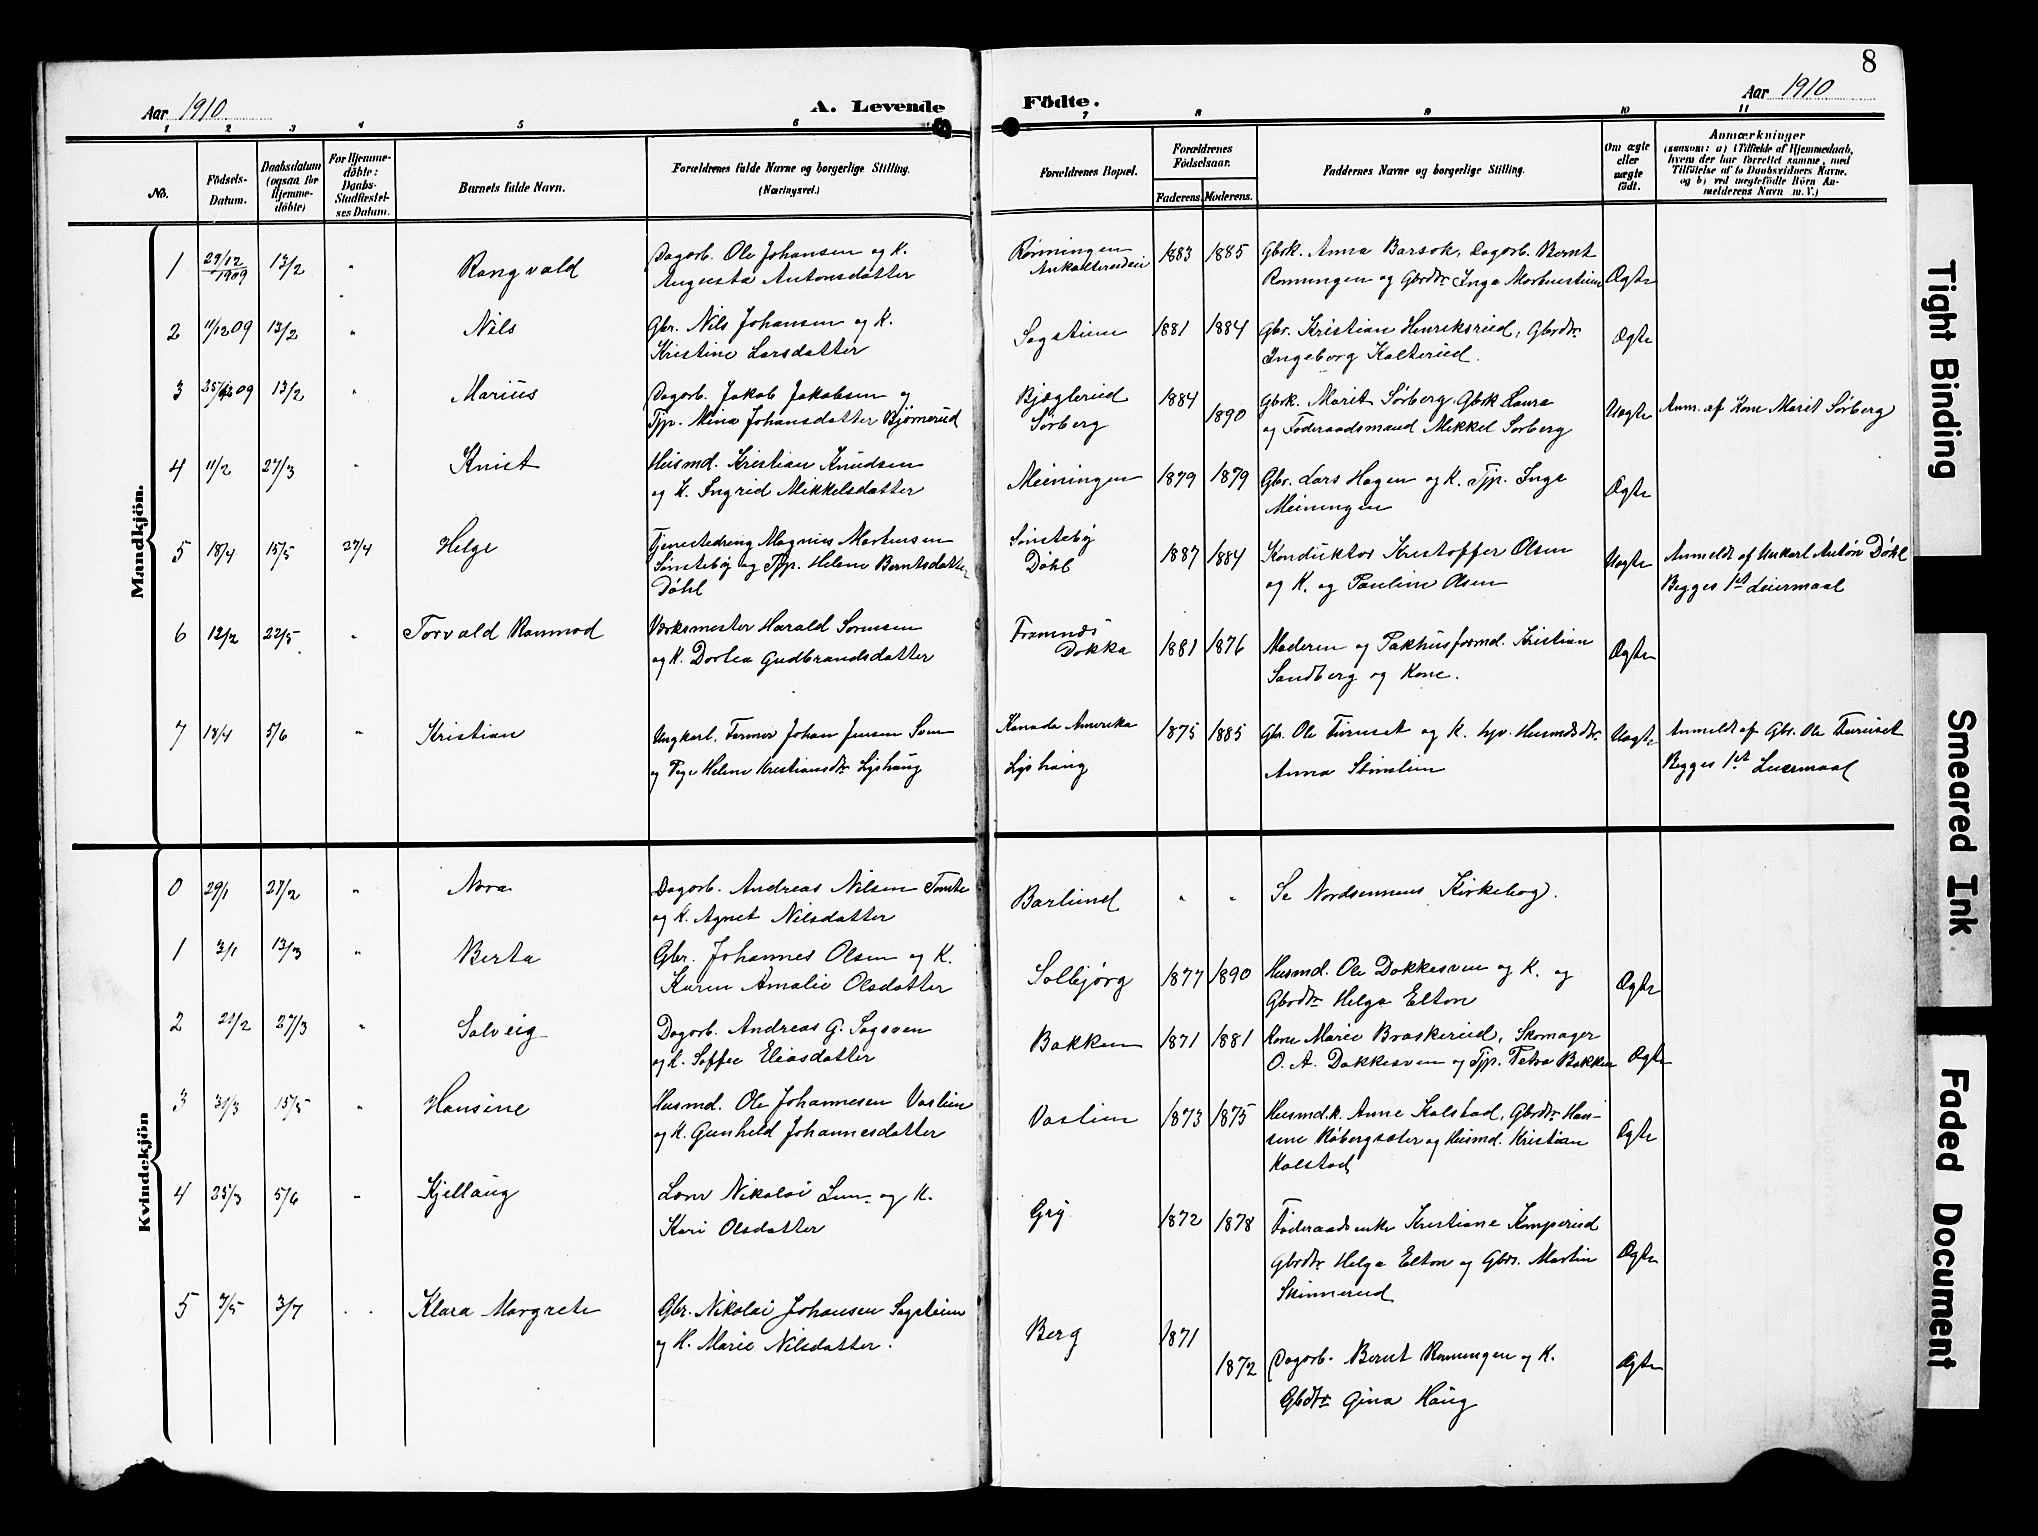 8
Aar 1910
A. Levende
Födte.
Aar 1910
1 2 3 4 5 6 7 8 9 10 11
No.
Födsels-
Datum.
Daabsdatum
(ogsaa for
Hjemme-
döbte)
For Hjemme-
döbte:
Daabs-
Stadfæstel-
ses Datum.
Barnets fulde Navn.
Forældrenes fulde Navne og borgerlige Stilling.
(Næringsvei.)
Forældrenes Bopæl.
Forældrenes
Födselsaar.
Faderens. Moderens.
Faddernes Navne og borgerlige Stilling.
Om ægte
eller
uægte
födt.
Anmærkninger
(saasom: a) i Tilfælde af Hjemmedaab,
hvem der har forrettet samme, med
Tilföielse af to Daabsvidners Navne,
og b) ved uægtefödte Börn An-
melderens Navn m. V.)
Mandkjön.
1 29/12 1909 13/2 " Rangvald
Dagarb. Ole Johansen og K.
Augusta Antonsdatter
Rønningen
1883 1885
Gbrk. Anna Barsok, Dagarb. Bernt
Rønningen og Gbrdtr. Inga
Ægte
2 11/12 09 13/2 " Nils
Gbr. Nils Johansen og K.
Kristine Larsdatter
Sagstuen
1881 1884
Gbr. Kristian Henriksrud, Gbrdtr.
Ingeborg Kalterud.
Ægte
3 25/12 09 13/2 " Marius
Dagarb. Jakob Jakobsen og
Tjp. Mina Johansdatter Bjørnerud
Bjøglerud
Sørberg
1884 1890
Gbrk. Marit Sørberg, Gbrk Laura
og Føderaadsmand Mikkel Sørberg
Uægte
Anm. af Kone Marit Sørberg
4 11/2 27/3 " Knut
Husmd. Kristian Knudsen
og K. Ingrid Mikkelsdatter
Meiningen
1879 1879
Gbr. Lars Hagen og K. Tjp. Inga
Meiningen
Ægte
5 18/4 15/5 27/4 Helge
Tjenestedreng Magnus Martinsen
Sønstebø og Tjp. Helene Berntsdatter
Døhl
Sønstebø
Døhl
1887 1884
Konduktør Kristoffer Olsen
og K. og Pauline Olsen
Uægte
Anmeldt af Unkarl Anton Døhl
Begges 1st Leiermaal
6 12/2 22/5 " Torvald Ranmod
Værksmester Harald Sørensen
og K. Dortea Gudbrandsdatter
Framnæs
Dokka
1881 1876
Moderen og Pakhusformd. Kristian
Sandberg og Kone.
Ægte
7 18/4 5/6 " Kristian
Ungkarl, Farmer Johan Jensen
og Pige Helene Kristiansdtr. Lyshaug
Kanada Amerika
Lyshaug
1875 1885
Gbr. Ole Furuset og K. Husmdsdtr.
Anna
Uægte
Anmeldt af Gbr. Ole Furuset
Begges 1st Leiermaal
Kvindekjön
0 29/1 27/2 " Nora
Dagarb. Andreas Nilsen Tomte
og K. Agnet Nilsdatter
Barlund
" "
Se Nordsennens Kirkebog.
1 3/1 13/3 " Berta
Gbr. Johannes Olsen og K.
Karen Amalie Olsdatter
Solbjørg
1877 1890
Husmd. Ole Dokkesven og K. og
Gbrdtr Helga Elton
Ægte
2 21/2 27/3 " Solveig
Dagarb. Andreas G. Sagsven
og K. Soffie Eliasdatter
Bakken
1871 1881
Kone Marie Braskerud, Skomager
O. A. Dokkesven og Tjp. Petra Bakken
Ægte
3 31/3 15/5 " Hansine
Husmd. Ole Johannesen Vaslien
og K. Gunhild Johannesdatter
Vaslien
1873 1875
Husmd.k. Anne Kolstad, Gbrdtr. Han-
sine Røbergsæter og Husmd. Kristian
Kolstad
Ægte
4 25/3 5/6 " Kjellaug
Nikolai Lun og K.
Kari Olsdatter
Gry.
1872 1878
Føderaadsenke Kristiane Kamperud
Gbrdtr. Helga Elton og Gbrs. Martin
Skinnerud
Ægte
5 7/5 3/7 " Klara Margrete
Gbr. Nikolai Johansen Sagstuen
og K. Marie Nilsdatter.
Berg
1871 1872
Dagarb. Bernt Rønningen og K.
Gbdtr Gina Haug
Ægte
Tight Binding
Smeared Ink
Faded Document